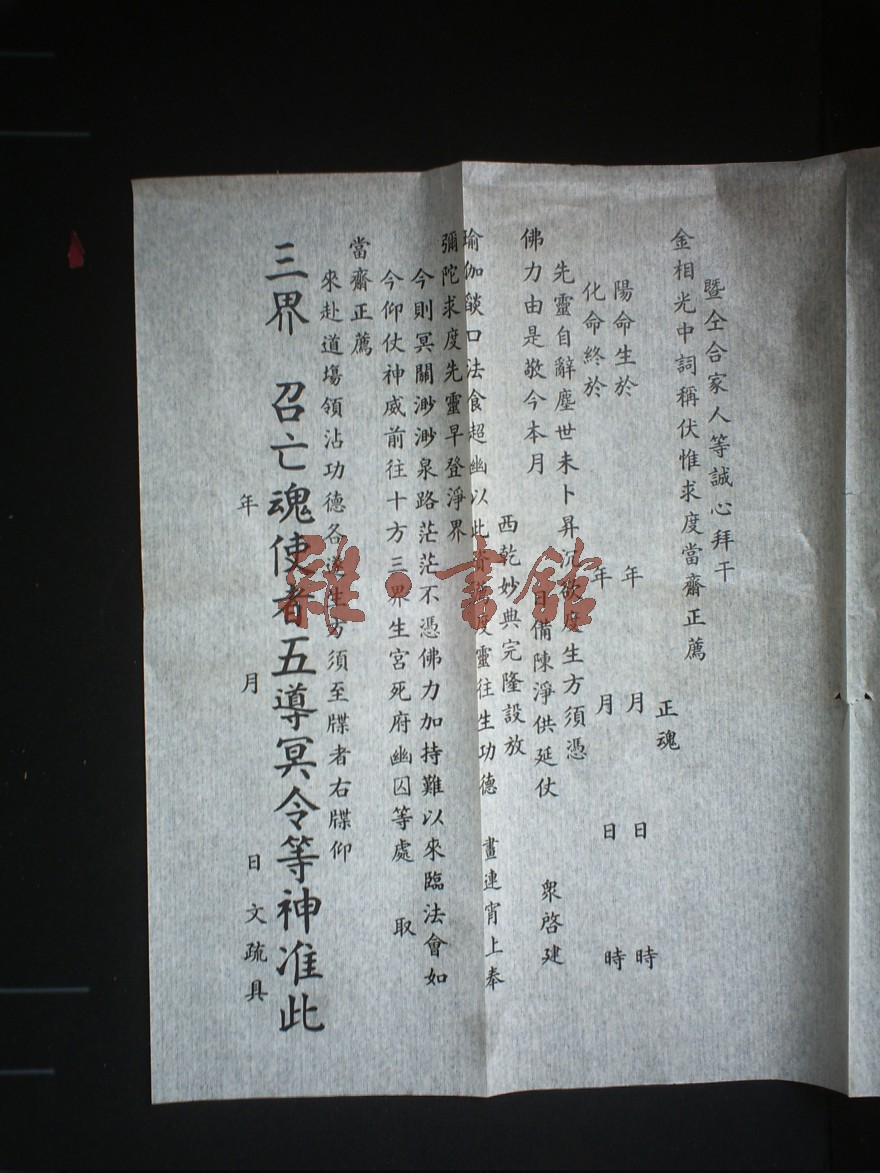 暨仝合家人等誠心拜干
金相光中詞稱伏惟求度當齋正薦 正魂
陽命生於 年 月 日 時
化命終於 年 月 日 時
先靈自辭塵世未卜昇沉欲度生方須憑
佛力由是敬今本月 日備陳淨供延仗 衆啓建
西乾妙典完隆設放
瑜伽燄口法食超幽以此 度靈往生功德 畫連宵上奉
彌陀求度先靈早登淨界
今則冥關渺渺泉路茫茫不憑佛力加持難以來臨法會如
今仰仗神威前往十方三界生宮死府幽囚等處 取
當齋正薦
來赴道塲領沾功德各 生方須至牒者右牒仰
三界 召亡魂使者五導冥令等神准此
年 月 日文疏具
雜·書館